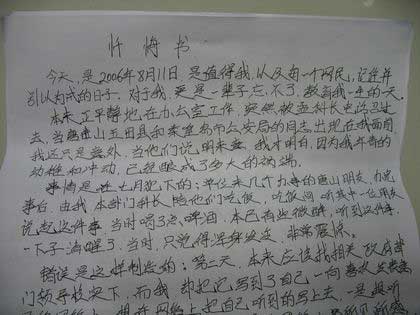 忏悔书
今天，是2006年8月11日，是值得我，以及每一个网民，记住并
引以为戒的日子。对于我，更是一辈子忘不了，教育我一生的一天。
本来正平静地在办公室工作，突然被孟科长电话叫过
去，当唐山玉田县和秦皇岛市公安局的同志出现在我面前，
我还只是意外。当他们说明来意，我才明白，因为我年青的
幼稚和冲动，已经酿成了多大的祸端。
事情是在七月犯下的：单位来几个办事的唐山朋友，办完
事后，由我本部门科长陪他们吃饭，吃饭间，听其中一位朋友
说起这件事，当时喝了点啤酒，本已有些微醉，听到这件事，
一下子清醒了，当时，只觉得浑身发冷，非常震惊。
错误是这样制造的：第二天，本来应该找相关政府
门领导核实下，而我却把它写到了自己一向喜欢
把自己听到的写上去，是想听